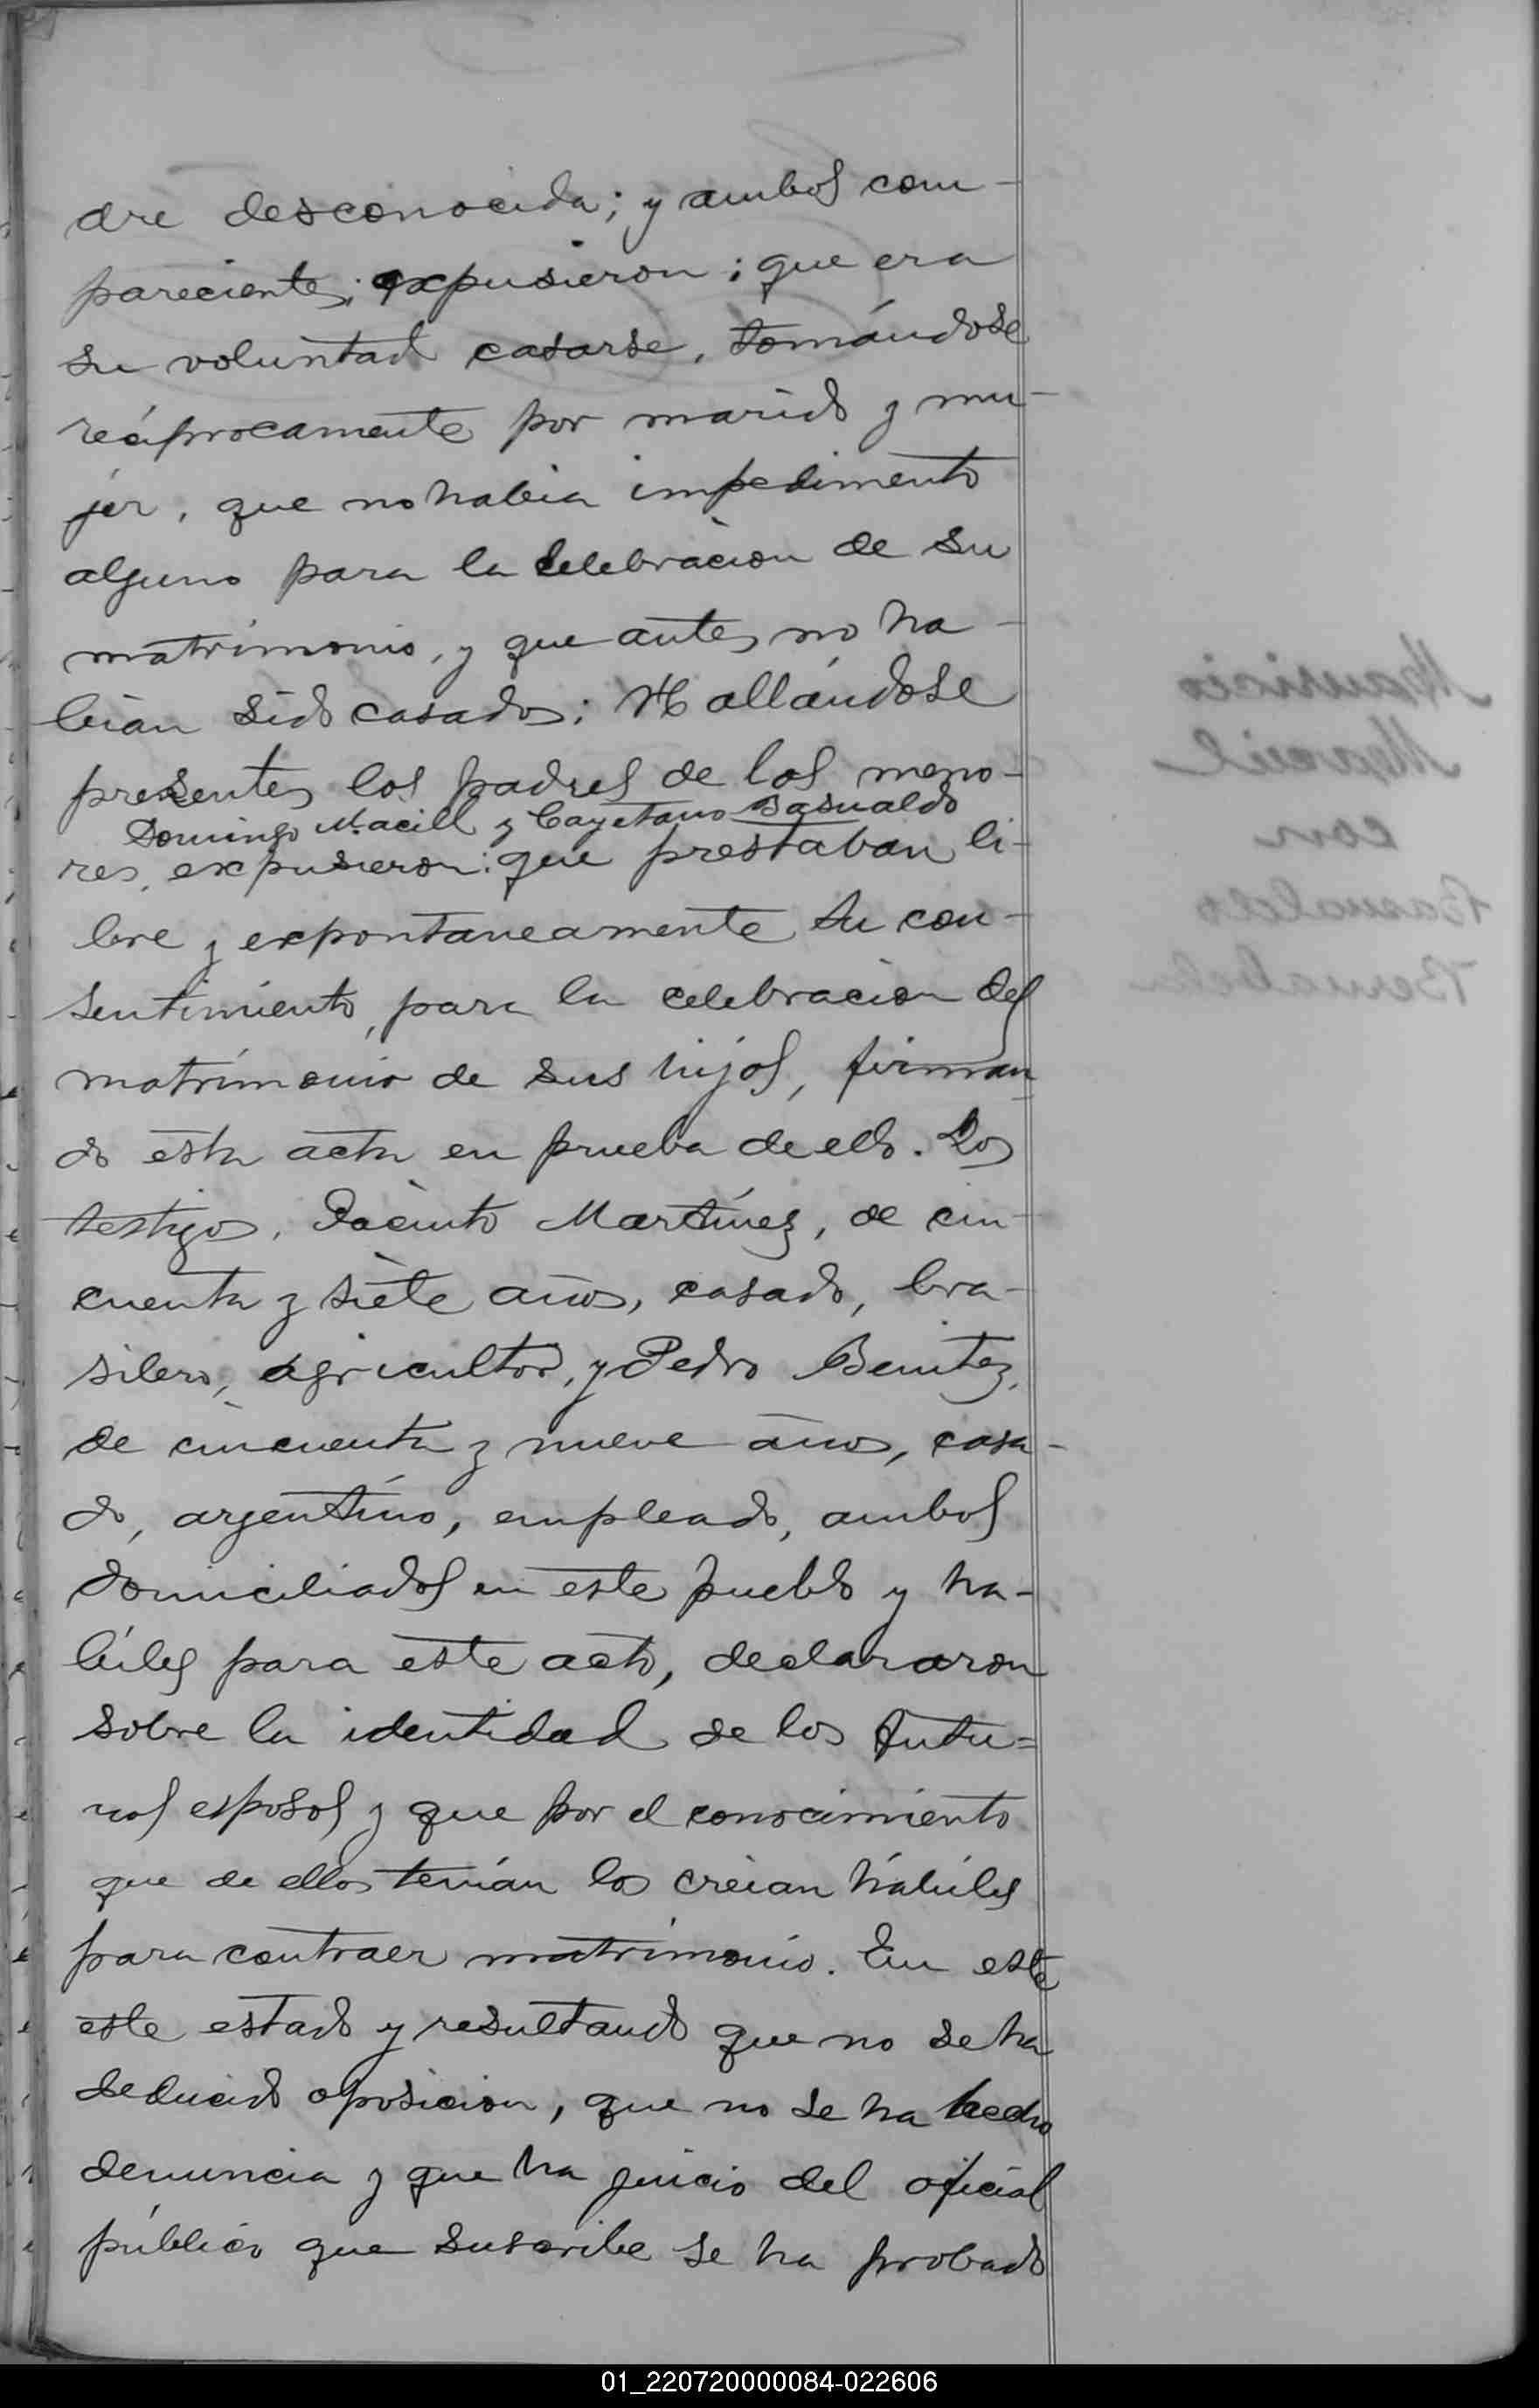 dre desconocida; y ambos com-
parecientes; expusieron; que era
su voluntad casarse, tomándose
recíprocamente por marido y mu-
jer, que no habia impedimento
alguno para la celebracion de su
matrimonio, y que antes no ha-
bian sido casados; Hallándose
presentes los padres de los meno-
Domingo Macill y Cayetano Basualdo
res, expusieron: que prestaban li-
bre y expontaneamente su con-
sentimiento, para la celebracion del
matrimonio de sus hijos, firman-
do esta acta en prueba de ello. Los
testigos, Jacinto Martínez, de cin-
cuenta y siete años, casado, bra-
silero, agricultor, y Pedro Benitez,
de cincuenta y nueve años, casa-
do, argentino, empleado, ambos
domiciliados en este pueblo y ha-
biles para este acto, declararon
sobre la identidad de los futu=
ros esposos y que por el conocimiento
que de ellos tenían los creian hábiles
para contraer matrimonio. En este
este estado y resultando que no se ha
deducido oposicion, que no se ha hecho
denuncia y que ha juicio del oficial
público que suscribe se ha probado
Mauricio
Maciel
con
Basualdo
Bernabela
01_220720000084-022606